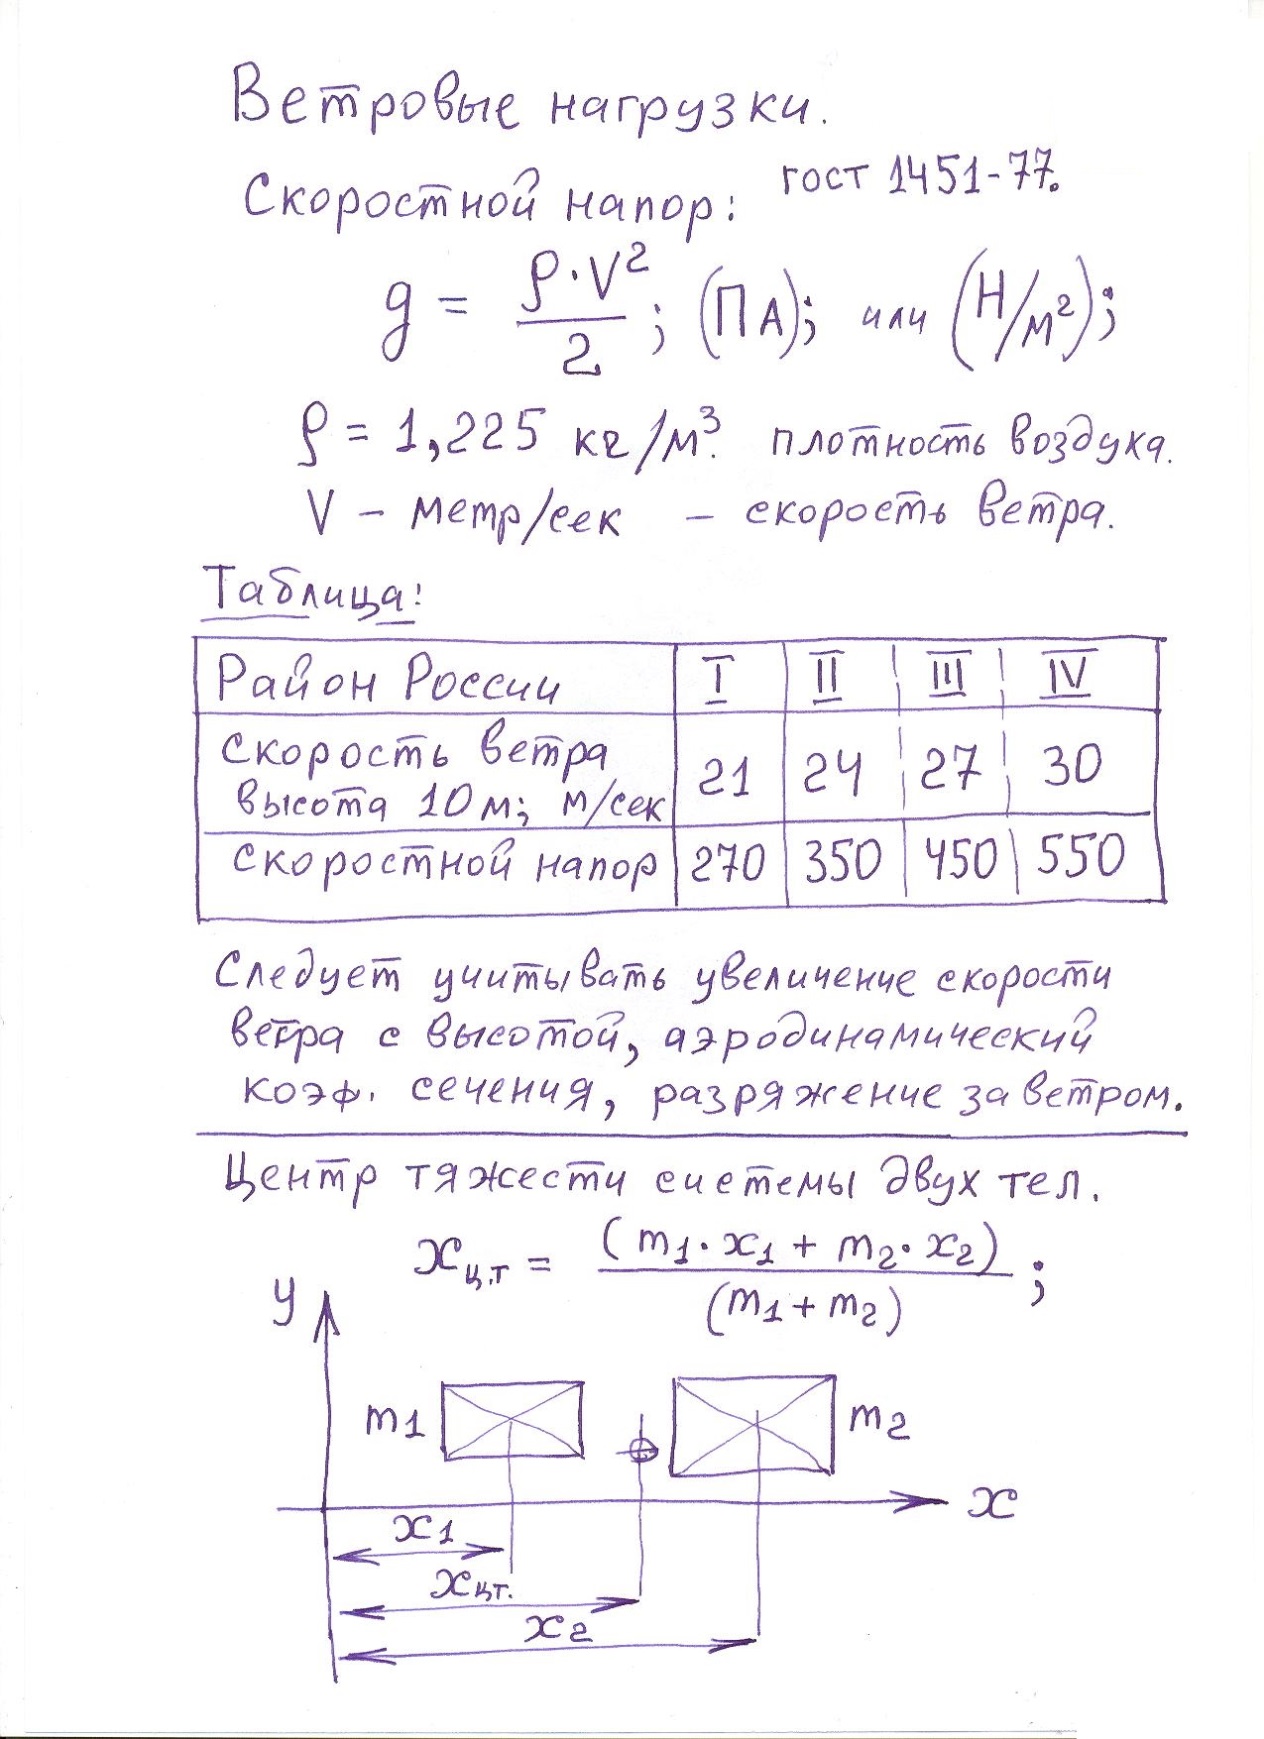 Ветровые нагрузки.
Скоростной напор: гост 1451-77.
g = ρ·V²/2; (ПА); или (Н/м²);
ρ = 1,225 кг/м³. плотность воздуха.
V – метр/сек – скорость ветра.
Таблица:
Район России I II III IV
Скорость ветра
высота 10м; м/сек 21 24 27 30
скоростной напор 270 350 450 550
Следует учитывать увеличение скорости
ветра с высотой, аэродинамический
коэф. сечения, разряжение за ветром.
Центр тяжести системы двух тел.
xц.т = (m1·x1 + m2·x2)/(m1+m2);
y
m1 m2
x
x1
xцт.
x2